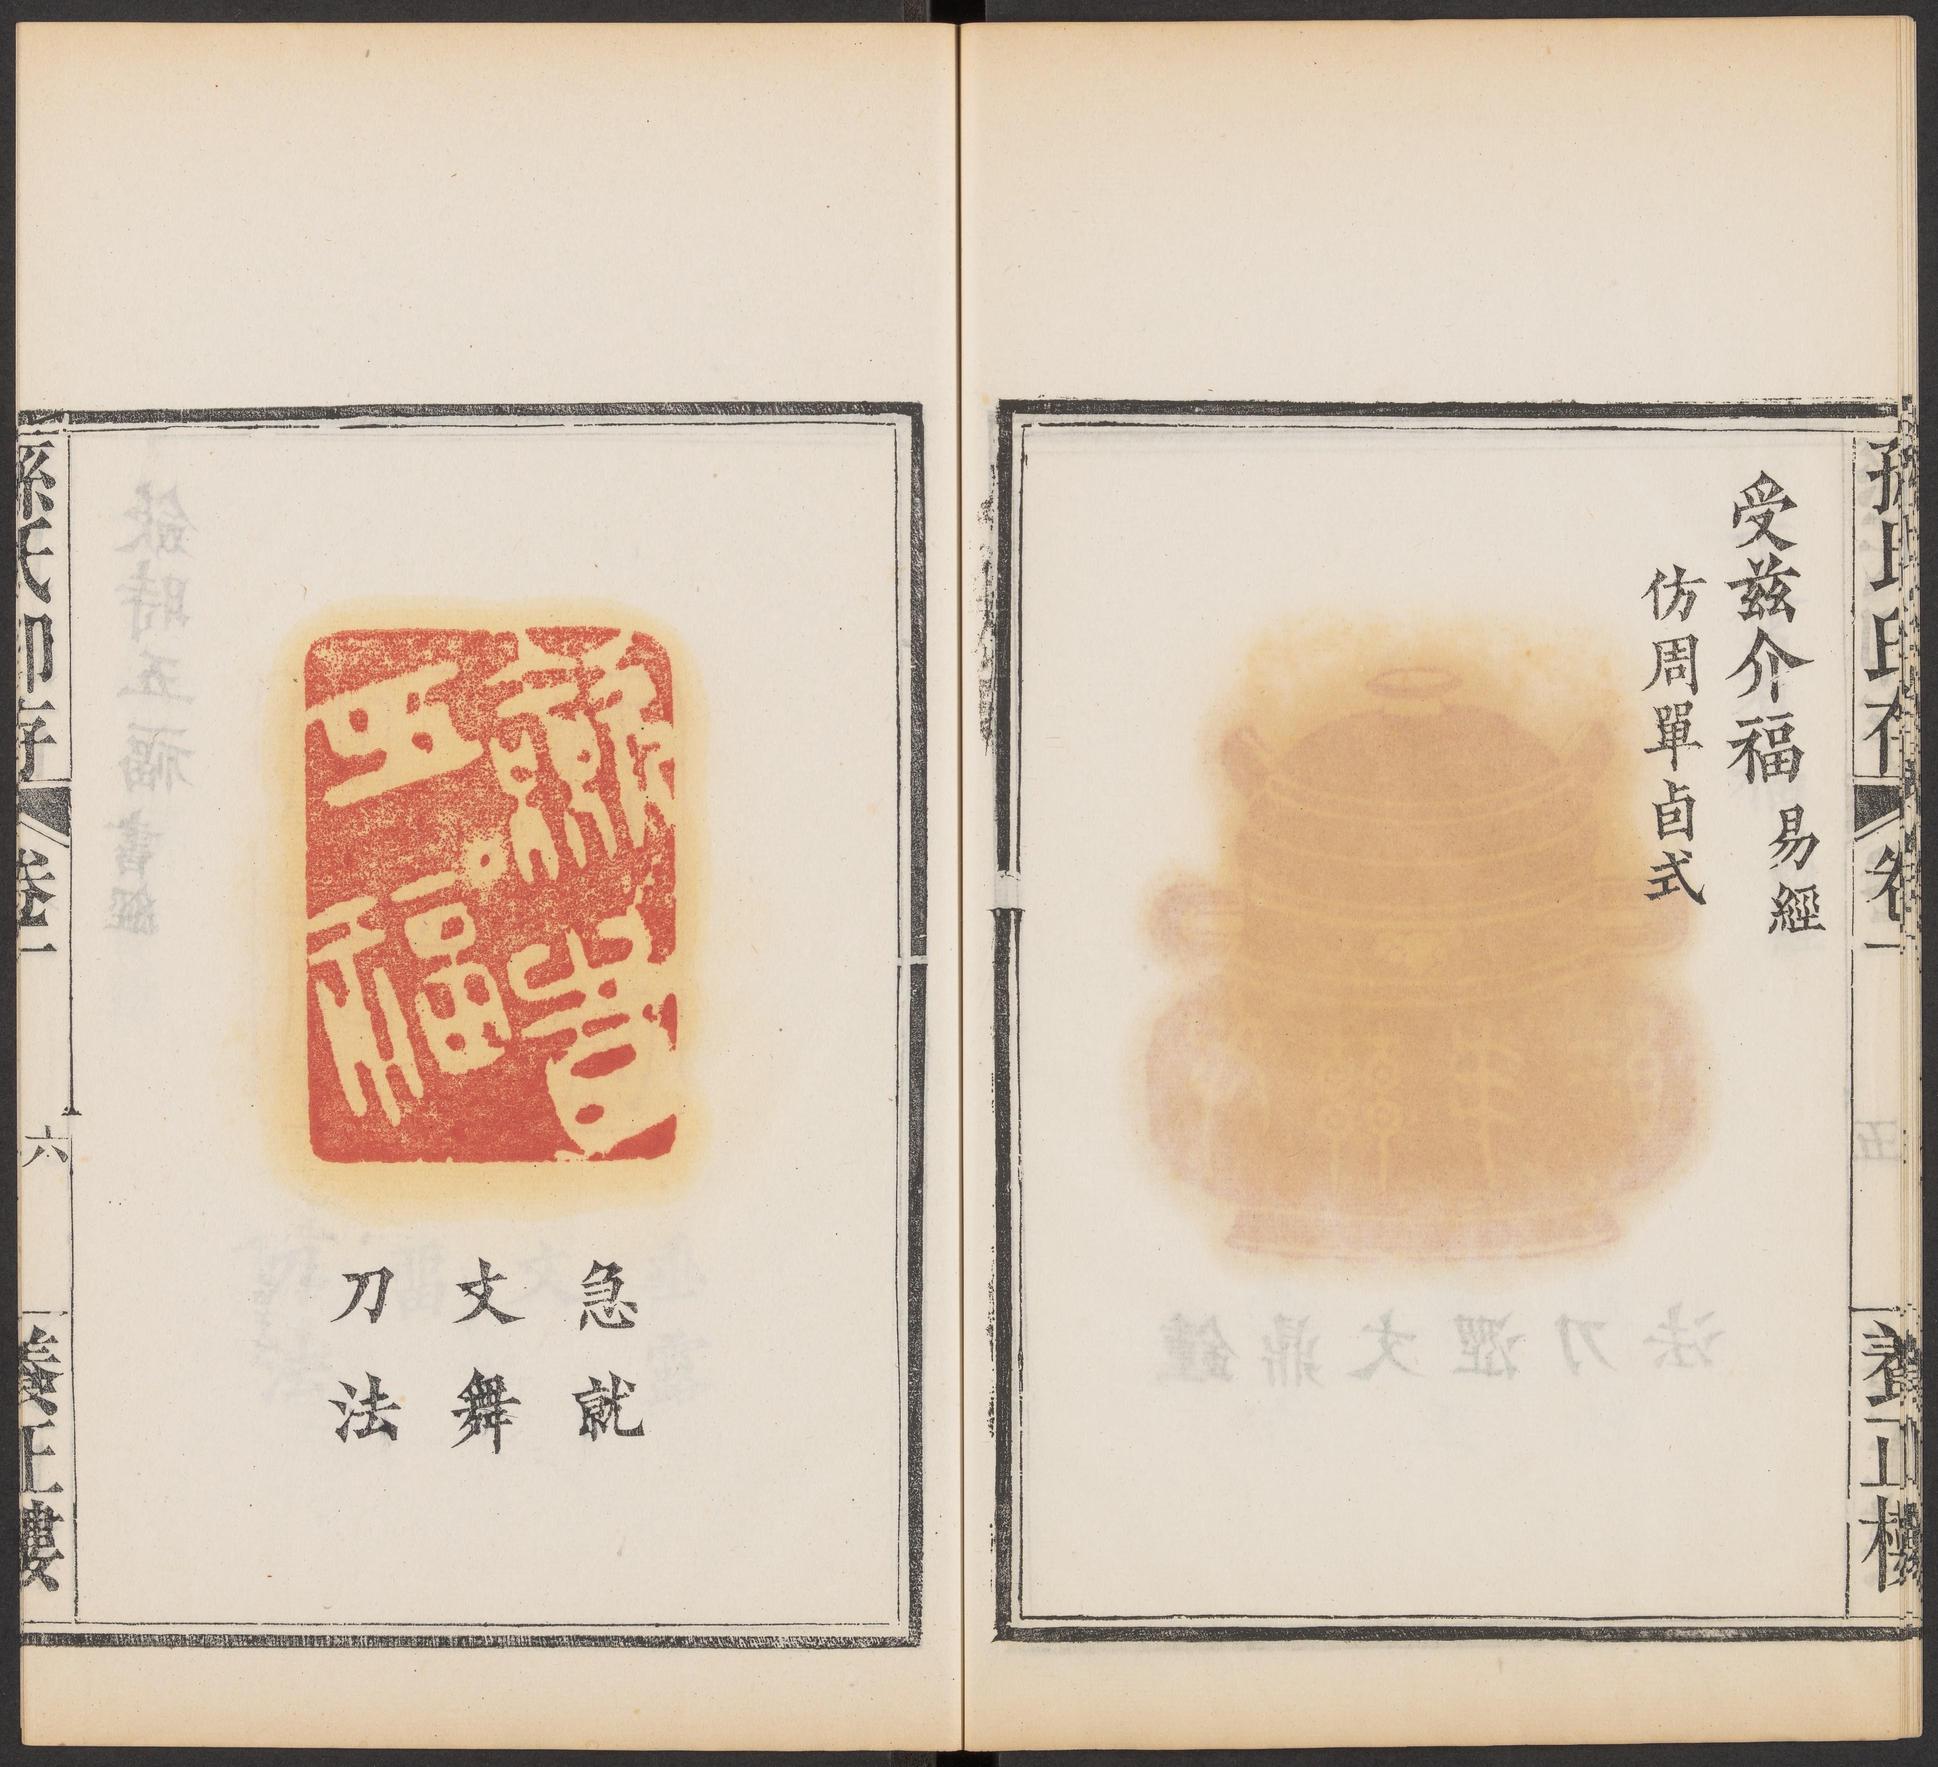 孫氏印存
卷一
養正樓
受茲介福 易經
仿周單卣式
斂時五福
急就
文舞
刀法
孫氏印存
卷一
六
養正樓